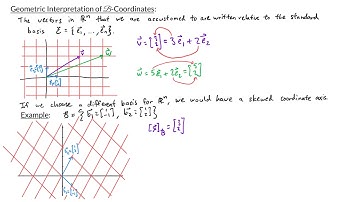 Geometric Interpretation of ℬ-Coordinates:
The vectors in ℝⁿ that we are accustomed to are written relative to the standard
basis ℰ = {e⃗₁, ..., e⃗ₙ}.
v⃗ = [3 2] = 3e⃗₁ + 2e⃗₂
w⃗ = 5e⃗₁ + 2e⃗₂ = [5 2]
If we choose a different basis for ℝⁿ, we would have a skewed coordinate axis.
Example: ℬ = {b⃗₁ = [1 -1], b⃗₂ = [1 2]}